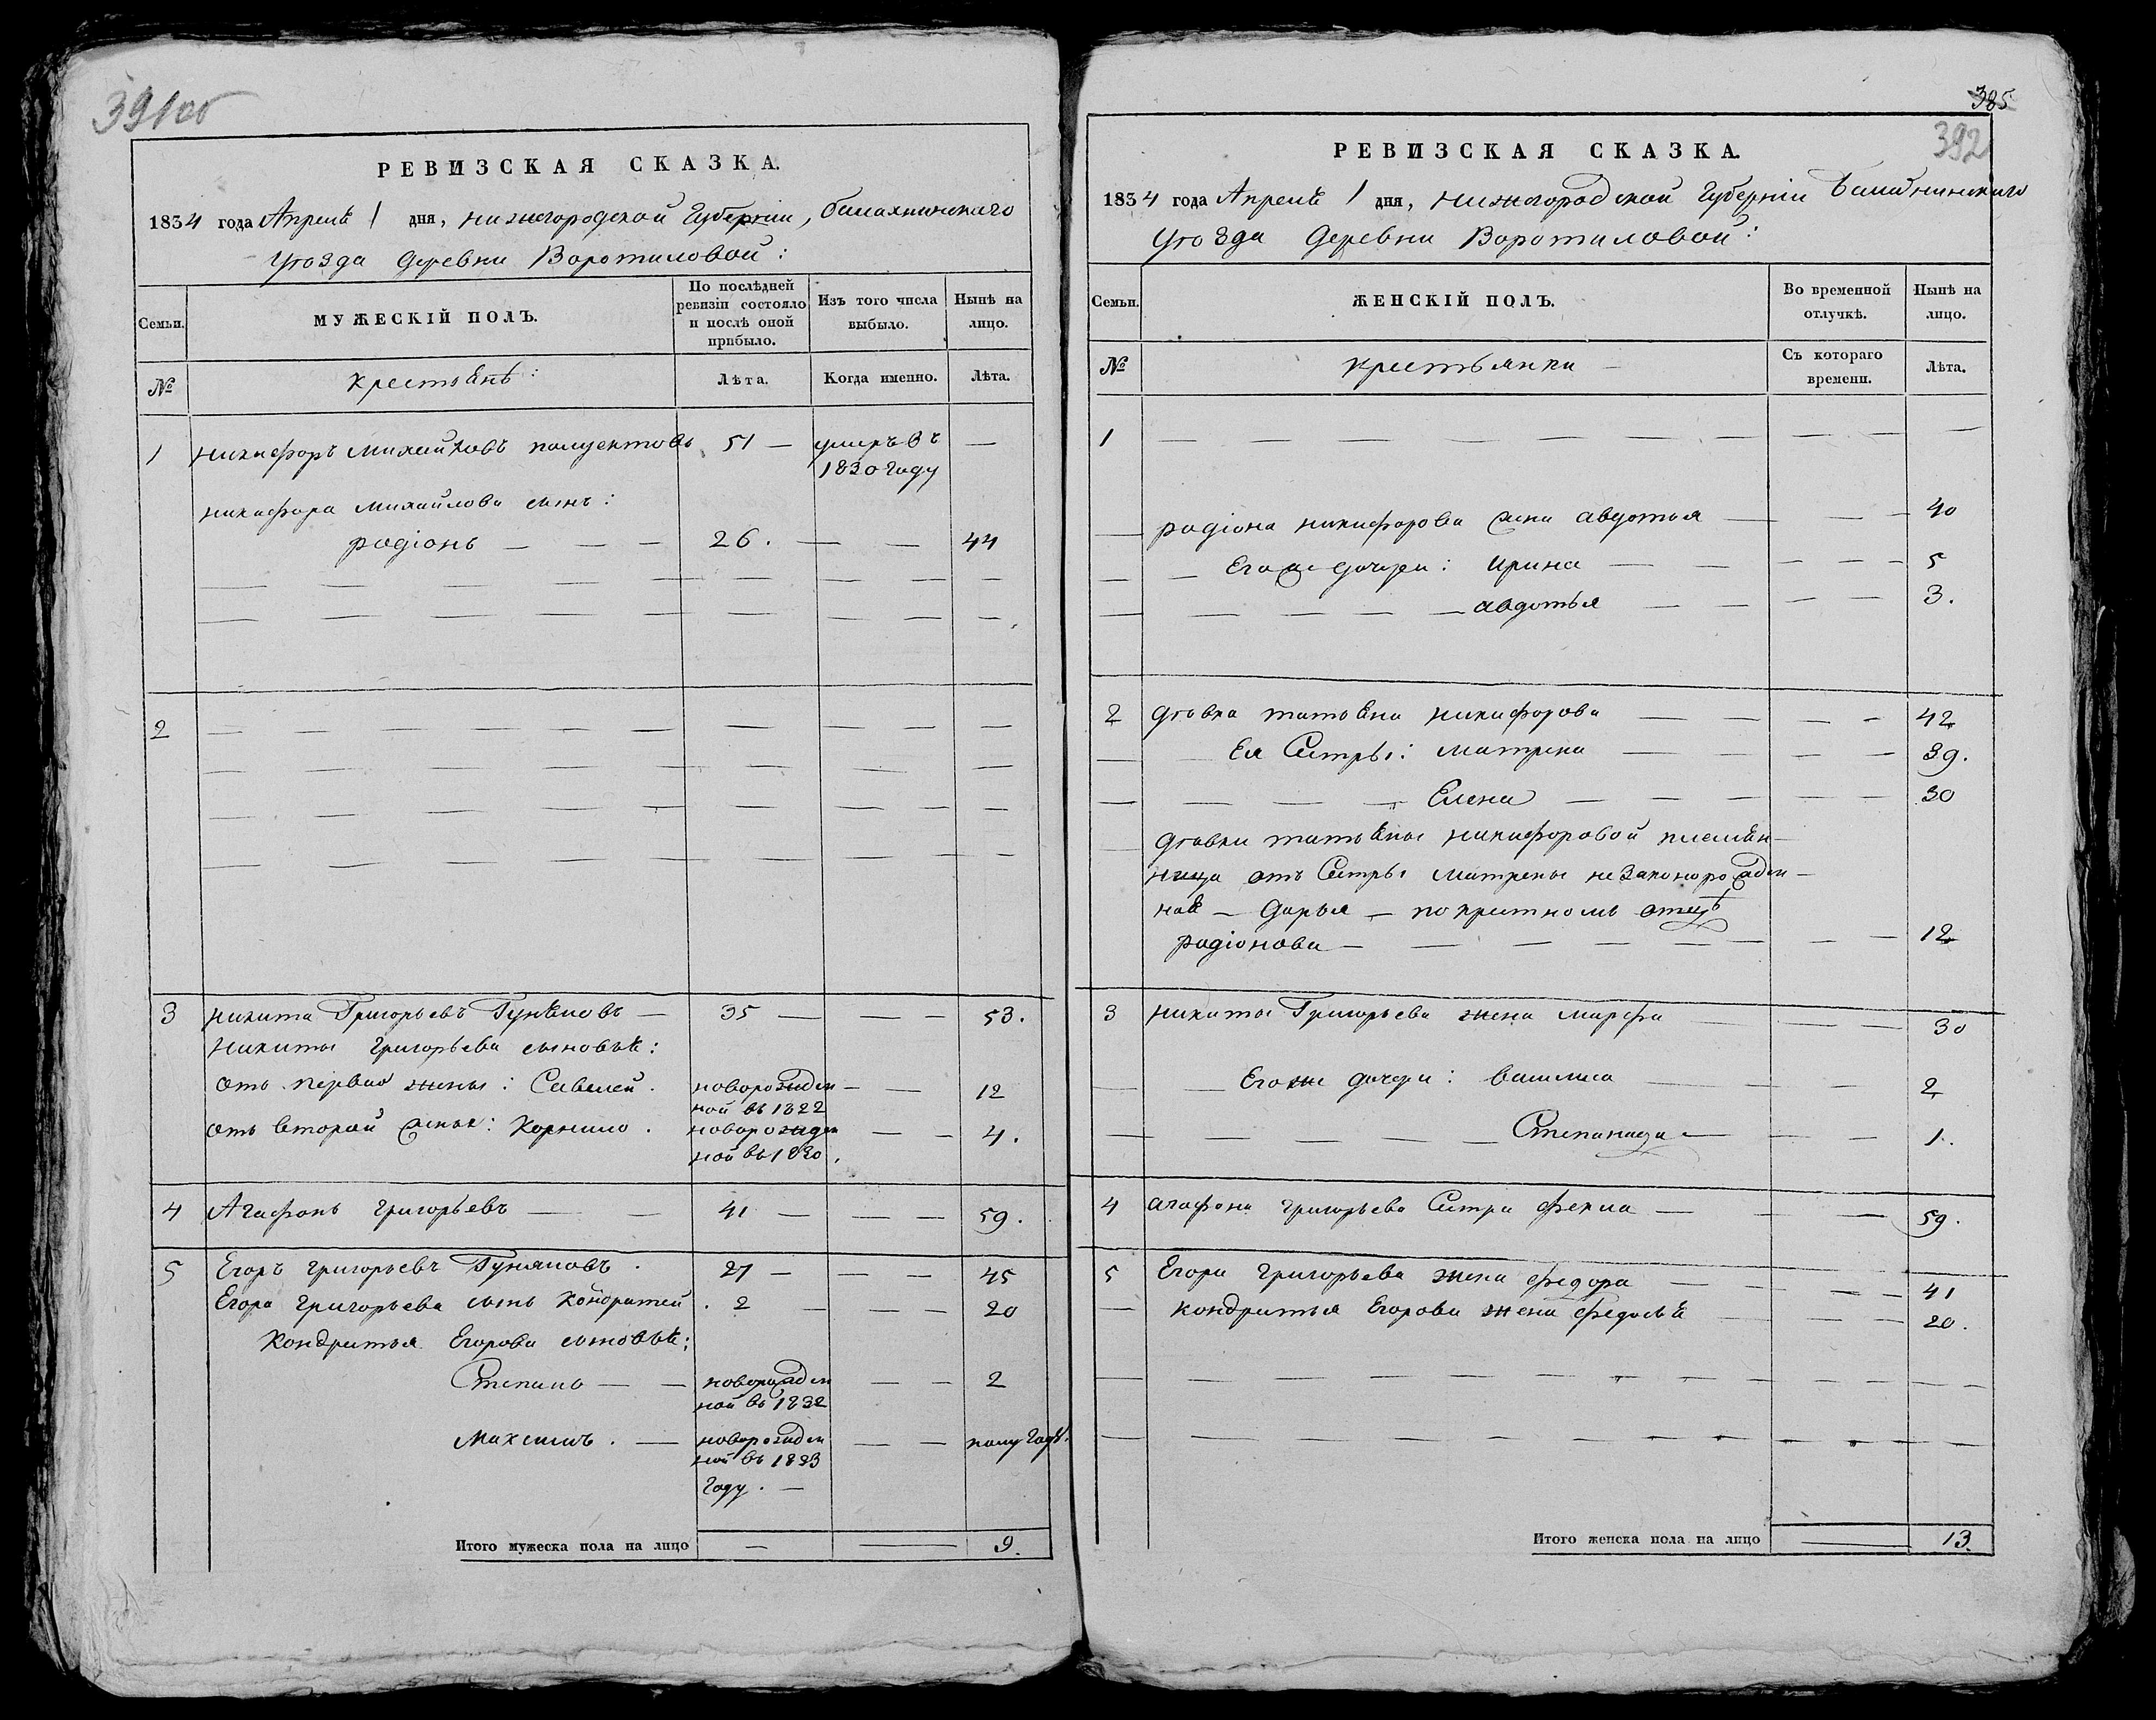 391об
РЕВИЗСКАЯ СКАЗКА.
1834 года Апреля 1 дня, нижегородской Губерніи, балахнинскаго
уѣзда деревни Воротиловой:
Семьи.
МУЖЕСКІЙ ПОЛЪ.
По послѣдней
ревизіи состояло
и послѣ оной
прибыло.
Изъ того числа
выбыло.
Нынѣ на
лицо.
№
крестьянѣ:
Лѣта.
Когда именно.
Лѣта.
1 никифоръ михайловъ полуектовъ 51 — умеръ въ —
1830 году
никифора михайлова сынъ:
родіонъ — — — 26. — — 44
2
3 никита Григорьевъ Гунѣновъ — 35 — — — 53.
никиты григорьева сыновья:
отъ первой жены: Савелей. новорожден — — 12
ной въ 1822
отъ второй жены: Корнило. новорожден — — 4.
ной въ 1830.
4 Агафонъ григорьевъ — — 41 — — — 59.
5 Егоръ григорьевъ Гуняновъ. 27 — — — 45
Егора григорьева сынъ Кондратей. 2 — — — 20
Кондратья Егорова сыновья:
Степанъ — — новорожден — — 2
ной въ 1832
Максимъ. — новорожден — — полугода.
ной въ 1833
году. —
Итого мужеска пола на лицо — — 9.
385
392
РЕВИЗСКАЯ СКАЗКА.
1834 года Апреля 1 дня, нижегородской Губерніи балахнинскаго
уѣзда деревни Воротиловой:
Семьи.
ЖЕНСКІЙ ПОЛЪ.
Во временной
отлучкѣ.
Нынѣ на
лицо.
№
крестьянки —
Съ котораго
времени.
Лѣта.
1
— родіона никифорова жена авдотья — — — 40
— — Егоже дочери: ирина — — — — — 5
— — — — — — авдотья — — — — 3.
2 девка татьяна никифорова — — — — 42
— Ея Сестры: матрена — — — — 39.
— — — — — Елена — — — — — 30
— девки татьяны никифоровой племян-
ница отъ Сестры матрены незаконорожден-
ная — дарья — по крестномъ отцѣ
родіонова — — — — — — — — 12
3 никиты Григорьева жена марфа — — — 30
— — Егоже дочери: василиса — — — 2
— — — — — — Степанида — — — 1.
4 агафона григорьева Сестра фекла — — — 59.
5 Егора григорьева жена федора — — — — 41
— кондратья Егорова жена федосья — — — — 20.
Итого женска пола на лицо — 13.